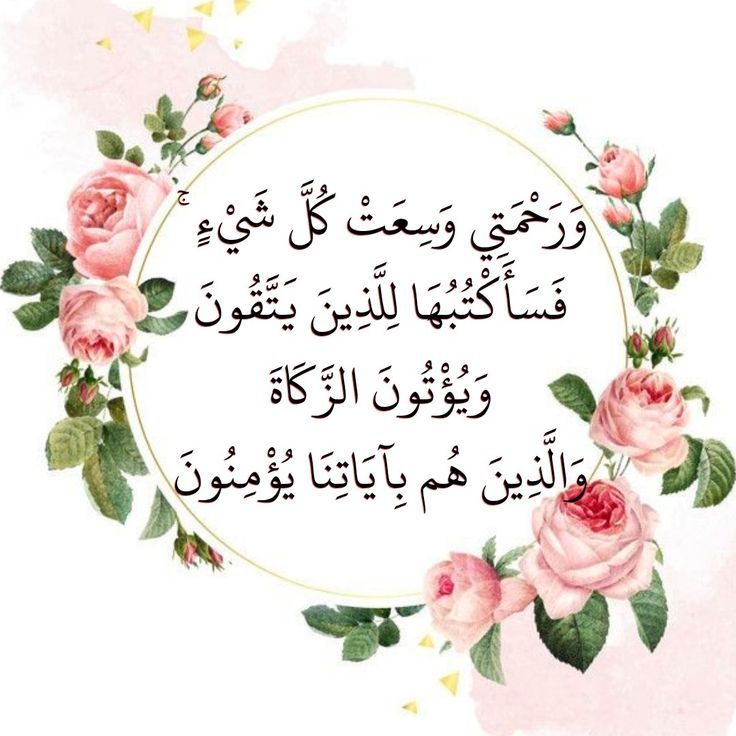 وَرَحْمَتِي وَسِعَتْ كُلَّ شَيْءٍ ۚ
فَسَأَكْتُبُهَا لِلَّذِينَ يَتَّقُونَ
وَيُؤْتُونَ الزَّكَاةَ
وَالَّذِينَ هُم بِآيَاتِنَا يُؤْمِنُونَ